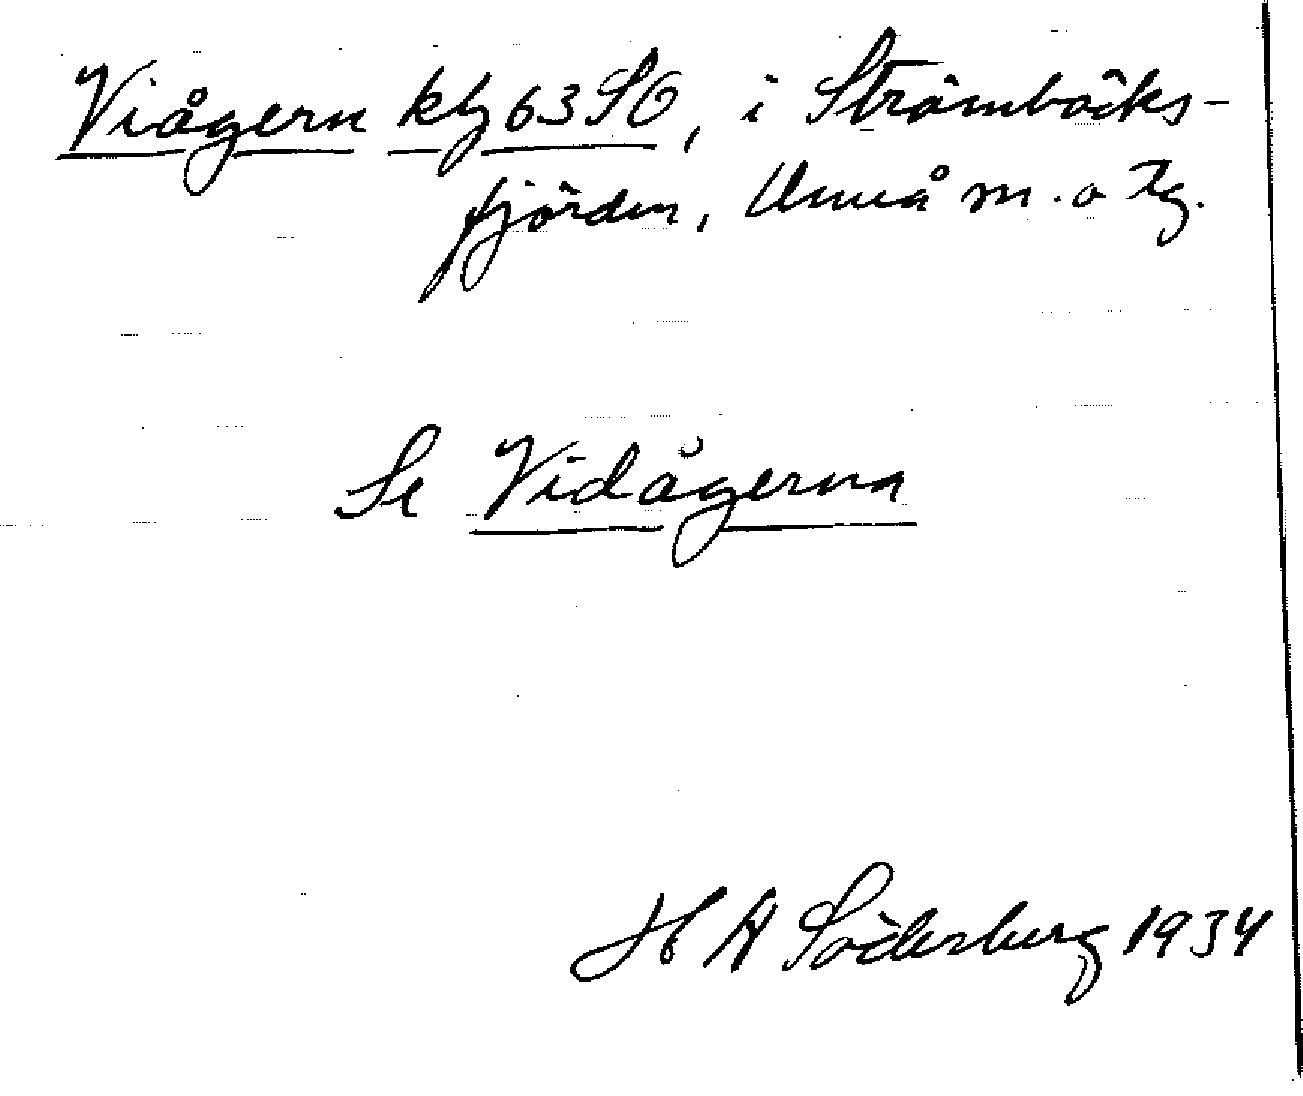 Viågern klj 63 SO, i Strömbäcks-
fjärden, Umeå m. o Tg.
Se Vidågerna
H A Söderberg 1934